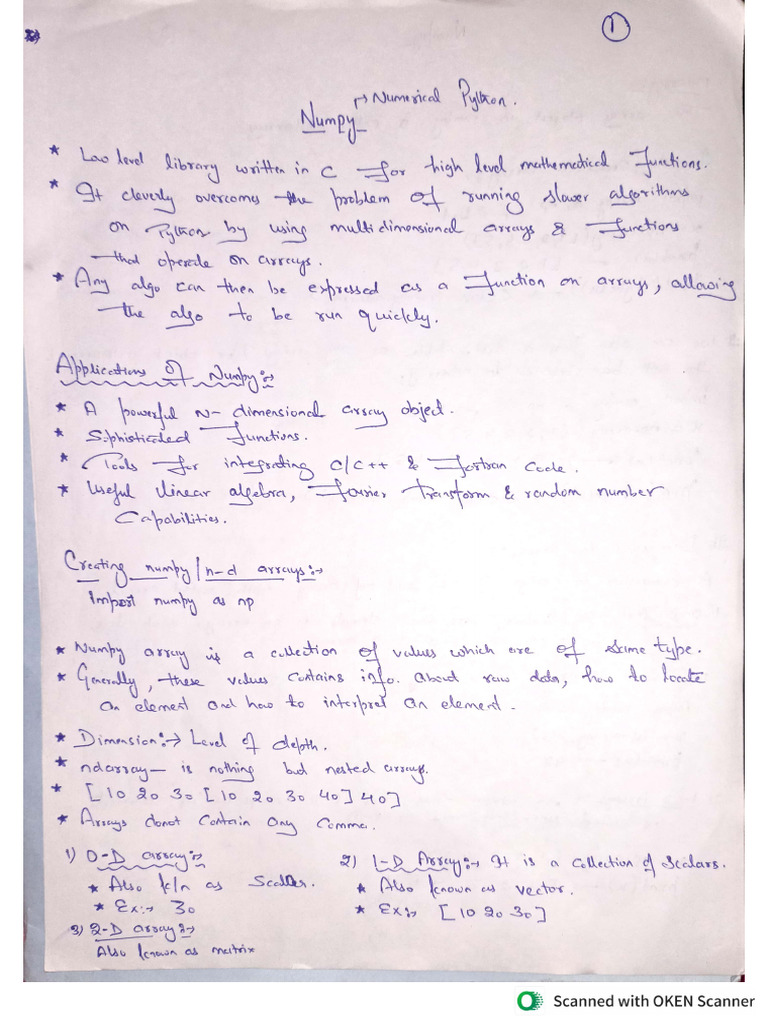 1
→ Numerical Python.
Numpy
* Low level library written in C for high level mathematical Functions.
* It cleverly overcomes the problem of running slower algorithms
on Python by using multidimensional arrays & Functions
that operate on arrays.
* Any algo can then be expressed as a Function on arrays, allowing
the algo to be run quickly.
Applications of Numpy:→
* A powerful N-dimensional array object.
* Sophisticated Functions.
* Tools for integrating C/C++ & Fortran Code.
* Useful linear algebra, Fourier Transform & random number
Capabilities.
Creating numpy/n-d arrays:→
Import numpy as np
* Numpy array is a collection of values which are of same type.
* Generally, these values contains info. about raw data, how to locate
an element and how to interpret an element.
* Dimension:→ Level of depth.
* ndarray— is nothing but nested arrays.
* [10 20 30 [10 20 30 40] 40]
* Arrays donot Contain any Comma.
1) 0-D array:→
* Also k/n as Scaller.
* Ex:→ 30
2) 1-D Array:→ It is a collection of Scalars.
* Also known as vector.
* Ex:→ [10 20 30]
3) 2-D array:→
Also known as matrix
Scanned with OKEN Scanner